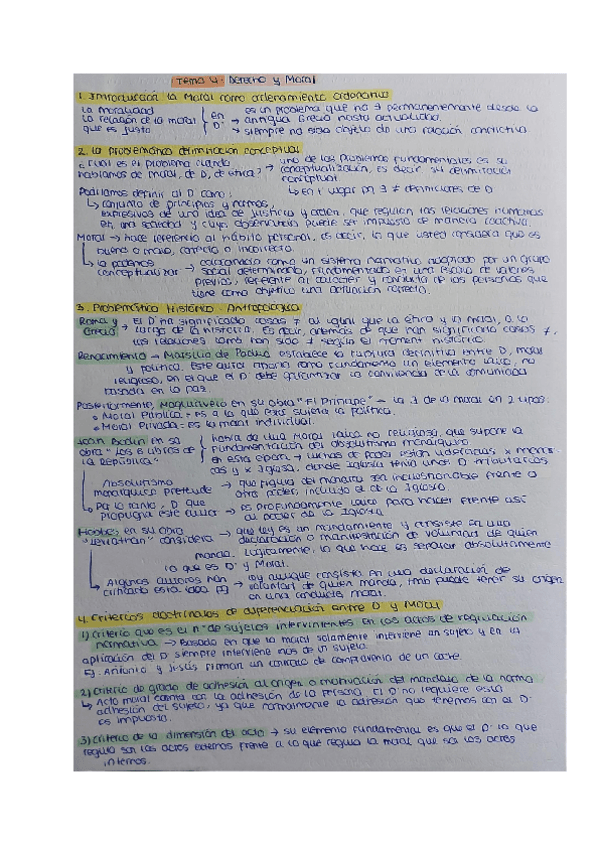 Tema 4: Derecho y Moral
1. Introducción la Moral como ordenamiento
La moralidad
La relación de la moral
que es justo
en D:
→ es un problema que no ∃ permanentemente desde la antigua Grecia hasta actualidad.
→ siempre no esta objeto de una relación conflictiva
2. La problemática delimitación conceptual
¿Cual es el problema cuando hablamos de moral, de D, de ética?
→ uno de los problemas fundamentales es su conceptualización, es decir, su delimitación conceptual
↳ en 1º lugar pq ∃ ≠ definiciones de D
Podríamos definir al D como:
↳ conjunto de principios y normas,
expresivos de una idea de justicia y orden, que regulan las relaciones humanas
en una sociedad y cuya observancia puede ser impuesta de manera coactiva.
Moral → hace referencia al hábito personal, es decir, lo que usted considera que es
bueno o malo, correcto o incorrecto.
↳ la podemos conceptualizar →
como un sistema normativo adoptado por un grupo
social determinado, fundamentado en una escala de valores
previos, referente al carácter y conducta de las personas que
tiene como objetivo una actuación correcta.
3. Problemática Histórico-Antropológica
Roma y Grecia → El D ha significado cosas ≠ al igual que la ética y la moral, a lo
largo de la historia. Es decir, además de que han significado cosas ≠,
sus relaciones como han sido ≠ según el moment histórico.
Renacimiento → Marsilio de Padua establece la ruptura definitiva entre D, moral
y política. Este autor aporta como fundamento un elemento laico, no
religioso, en el que el D debe garantizar la convivencia de la comunidad
basada en la paz.
Posteriormente, Maquiavelo en su obra "El Príncipe" → la ∃ de la moral en 2 tipos:
• Moral Pública: es a lo que está sujeta la política.
• Moral Privada: es la moral individual.
Jean Bodin en su obra "los 6 libros de la República"
habla de una moral laica no religiosa, que supone la
fundamentación del absolutismo monárquico
en esta época → luchas de poder están lideradas x monar-
cas y x Iglesia, donde Iglesia tenía unos D tributarios
Absolutismo monárquico pretende → que figura del monarca sea incuestionable frente a
otro poder, incluido el de la Iglesia.
↳ Por lo tanto, D que propugna este autor → es profundamente laico para hacer frente así
al poder de la Iglesia.
Hobbes en su obra "Leviathan" considera → que ley es un mandamiento y consiste en una
declaración o manifestación de voluntad de quien
manda. Lógicamente, lo que hace es separar absolutamente
lo que es D y Moral.
↳ Algunos autores han criticado esta idea pq → ley aunque consista en una declaración de
voluntad de quien manda, tmb puede tener su origen
en una conducta moral.
4. Criterios doctrinales de diferenciación entre D y Moral
1) Criterio que es el nº de sujetos intervinientes en los actos de regulación
normativa → Basado en que la moral solamente interviene un sujeto y en la
aplicación del D siempre interviene más de un sujeto.
Ej. Antonio y Jesús firman un contrato de compraventa de un coche.
2) Criterio de grado de adhesión al origen o motivación del mandato de la norma
↳ Acto moral cuenta con la adhesión de la persona. El D no requiere esta
adhesión del sujeto, ya que normalmente la adhesión que tenemos con el D
es impuesta.
3) Criterio de la dimensión del acto → su elemento fundamental es que el D lo que
regula son los actos externos frente a lo que regula la moral que son los actos
internos.